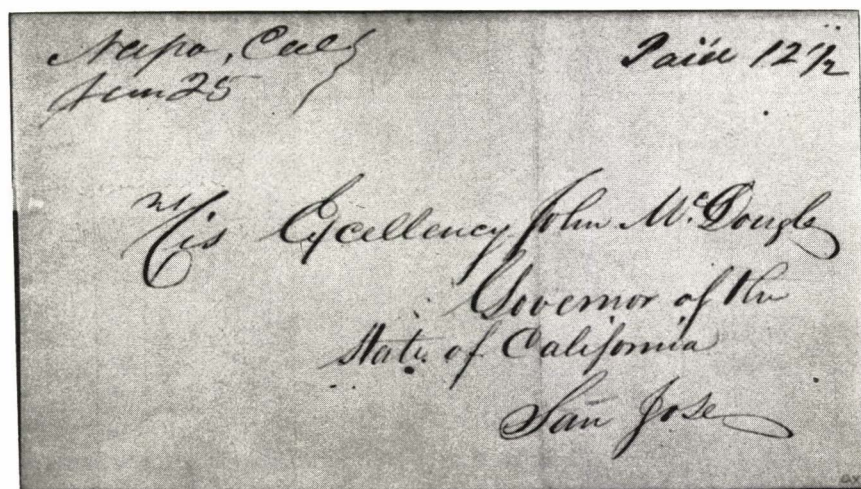 Napa, Cal
Paid 12 1/2
Jun 25
His Excellency John McDougle
Governor of the
State of California
San Jose